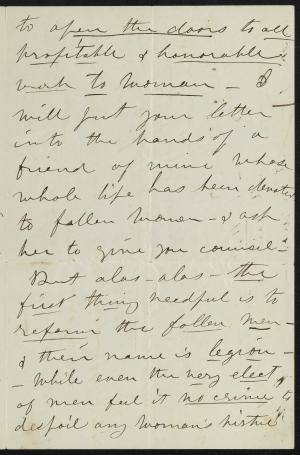 to open the doors to all
profitable & honorable
work to woman - I
will put your letter
into the hands of a
friend of mine whose
whole life has been devoted
to fallen women - & ask
her to give you counsel -
But alas - alas - the
first thing needful is to
reform the fallen men -
& their name is legion -
- while even the very elect
of men feel it no crime to
despoil any woman's virtue